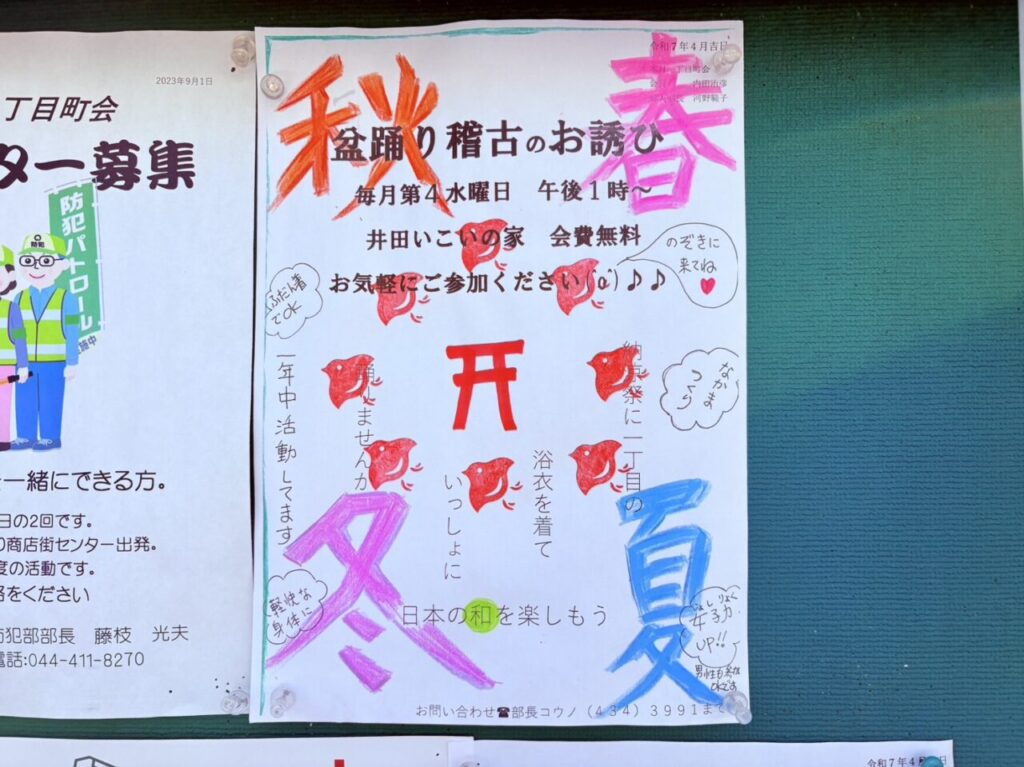 2023年9月1日
丁目町会
ター募集
防犯パトロール
防犯
一緒にできる方。
日の2回です。
り商店街センター出発。
度の活動です。
絡をください
防犯部部長 藤枝 光夫
電話:044-411-8270
令和7年4月吉日
丁目町会
内田治彦
河野範子
春
夏
秋
冬
盆踊り稽古のお誘ひ
毎月第4水曜日 午後1時~
井田いこいの家 会費無料
お気軽にご参加ください(^o^)♪♪
のぞきに
来てね
ふだん着
でOK
なかま
つくり
納涼祭に一丁目の
浴衣を着て
いっしょに
踊りませんか
一年中活動してます
軽快な
身体に
日本の和を楽しもう
じょしりょく
女子力
UP!!
OKです
お問い合わせ☎部長コウノ(434)3991まで
令和7年4月